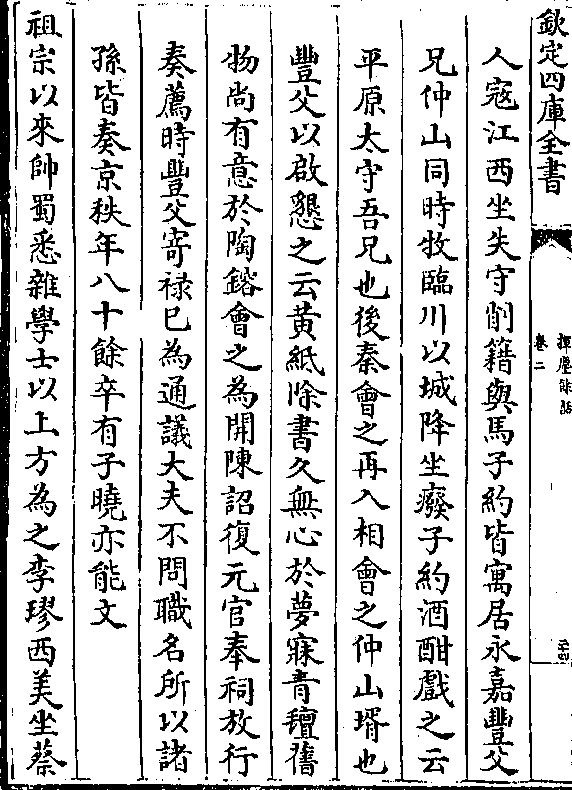 欽定四庫全書
揮麈餘話
卷二
人寇江西坐失守削籍與馬子約皆寓居永嘉豐父
兄仲山同時牧臨川以城降坐癈子約酒酣戲之云
平原太守吾兄也後秦會之再入相會之仲山壻也
豐父以啟懇之云黄紙除書久無心於夢寐青氊舊
物尚有意於陶鎔會之為開陳詔復元官奉祠放行
奏薦時豐父寄禄已為通議大夫不問職名所以諸
孫皆奏京秩年八十餘卒有子曉亦能文
祖宗以來帥蜀悉雜學士以上方為之李璆西美坐蔡